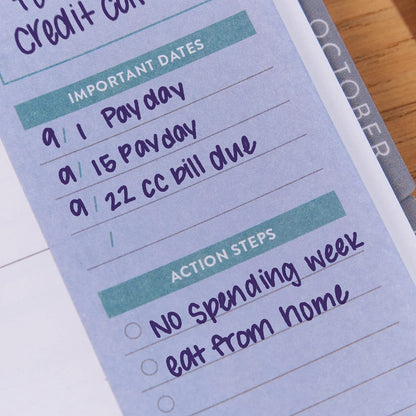 credit
IMPORTANT DATES
9/1 Payday
9/15 Payday
9/22 CC bill due
/
ACTION STEPS
No spending week
eat from home
OCTOBER